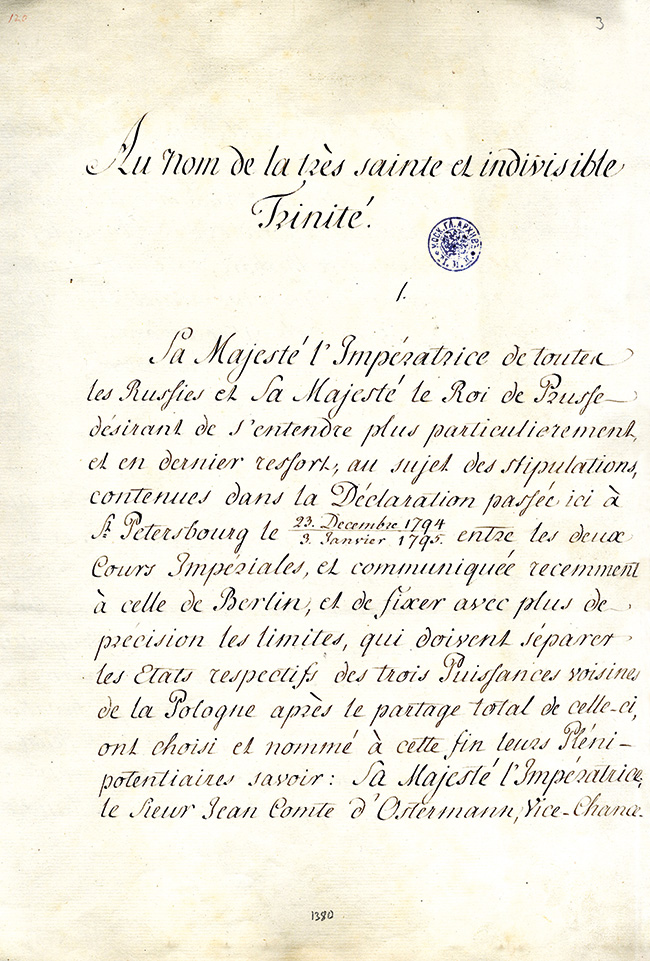 120
3
Au Nom de la très sainte et indivisible
Trinité.
МОСК. ГЛ. АРХИВЪ
1.
Sa Majesté l'Impératrice de toutes
les Russies et Sa Majesté le Roi de Prusse
désirant de s'entendre plus particulierement,
et en dernier ressort, au sujet des stipulations,
contenues dans la Déclaration passée ici à
St. Petersbourg le 23. Decembre 1794 / 3. Janvier 1795. entre les deux
Cours Impériales, et communiquée recemment
à celle de Berlin, et de fixer avec plus de
précision les limites, qui doivent séparer
les Etats respectifs des trois Puissances voisines
de la Pologne après le partage total de celle-ci,
ont choisi et nommé à cette fin leurs Pléni-
potentiaires savoir: Sa Majesté l'Impératrice,
le Sieur Jean Comte d'Ostermann, Vice-Chance-
1380